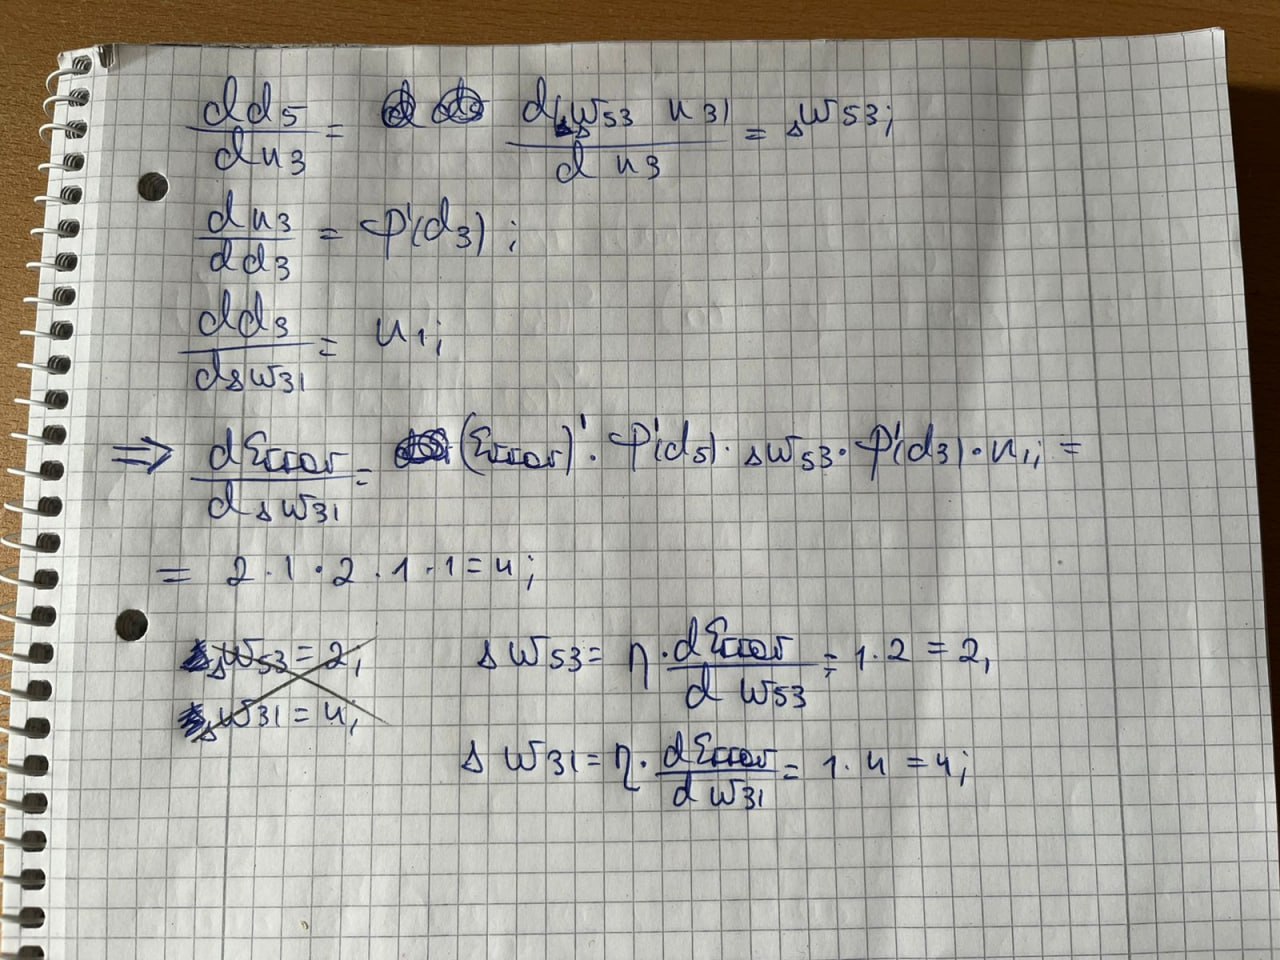 dd5/du3 = d(Δw53 u3)/du3 = Δw53;
du3/dd3 = φ'(d3);
dd3/dΔw31 = u1;
⇒ dError/dΔw31 = (Error)' · φ'(d5) · Δw53 · φ'(d3) · u1; =
= 2 · 1 · 2 · 1 · 1 = 4;
Δw53 = 2, Δw53 = η · dError/dw53 = 1 · 2 = 2,
Δw31 = 4; Δw31 = η · dError/dw31 = 1 · 4 = 4;